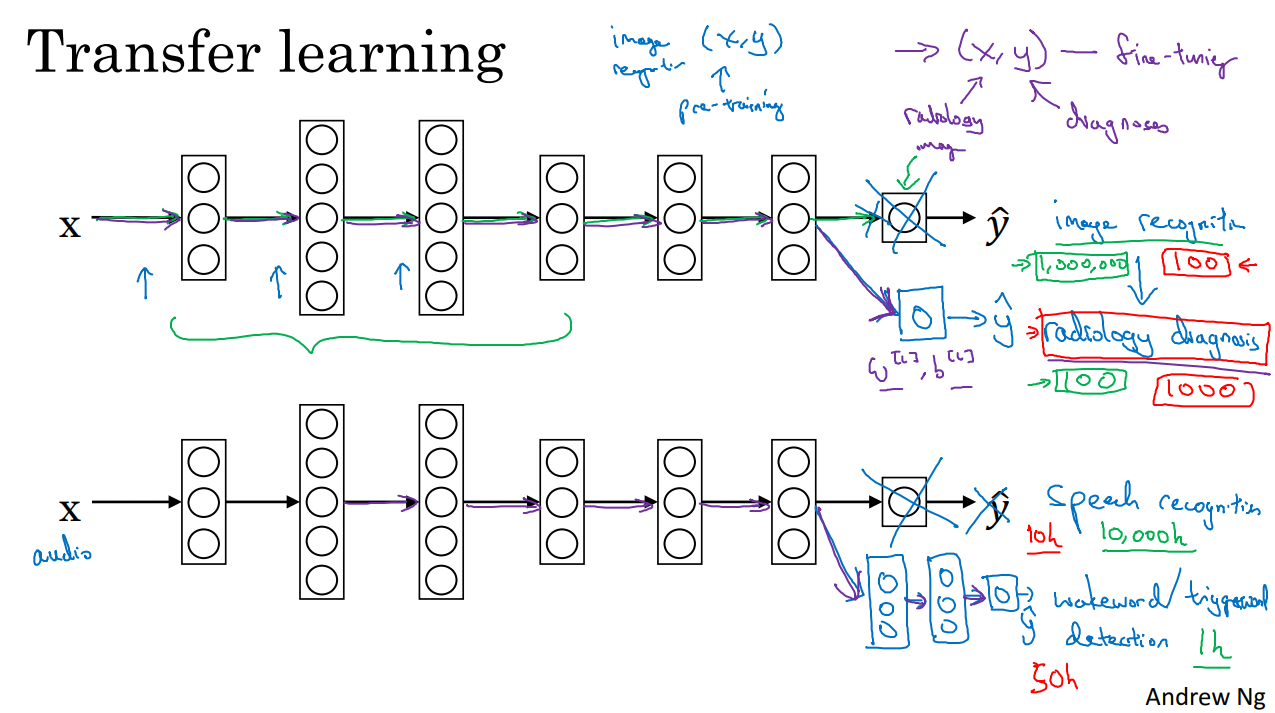 Transfer learning
image (x, y)
recognition
pre-training
→ (x, y) — fine-tuning
radiology
image
diagnoses
x
ŷ
image recognition
→ 1,000,000
100 ←
ŷ
→ radiology diagnosis
w[L], b[L]
→ 100
1000
x
audio
ŷ
speech recognition
10h
10,000h
ŷ
wakeword/triggerword
detection
1h
50h
Andrew Ng